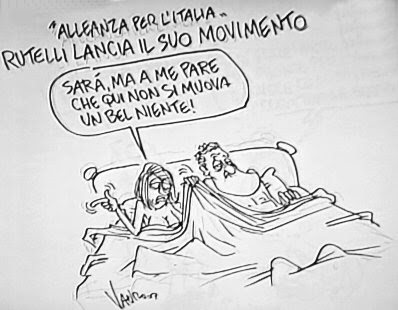 "ALLEANZA PER L'ITALIA"
RUTELLI LANCIA IL SUO MOVIMENTO
SARÁ, MA A ME PARE
CHE QUI NON SI MUOVA
UN BEL NIENTE!